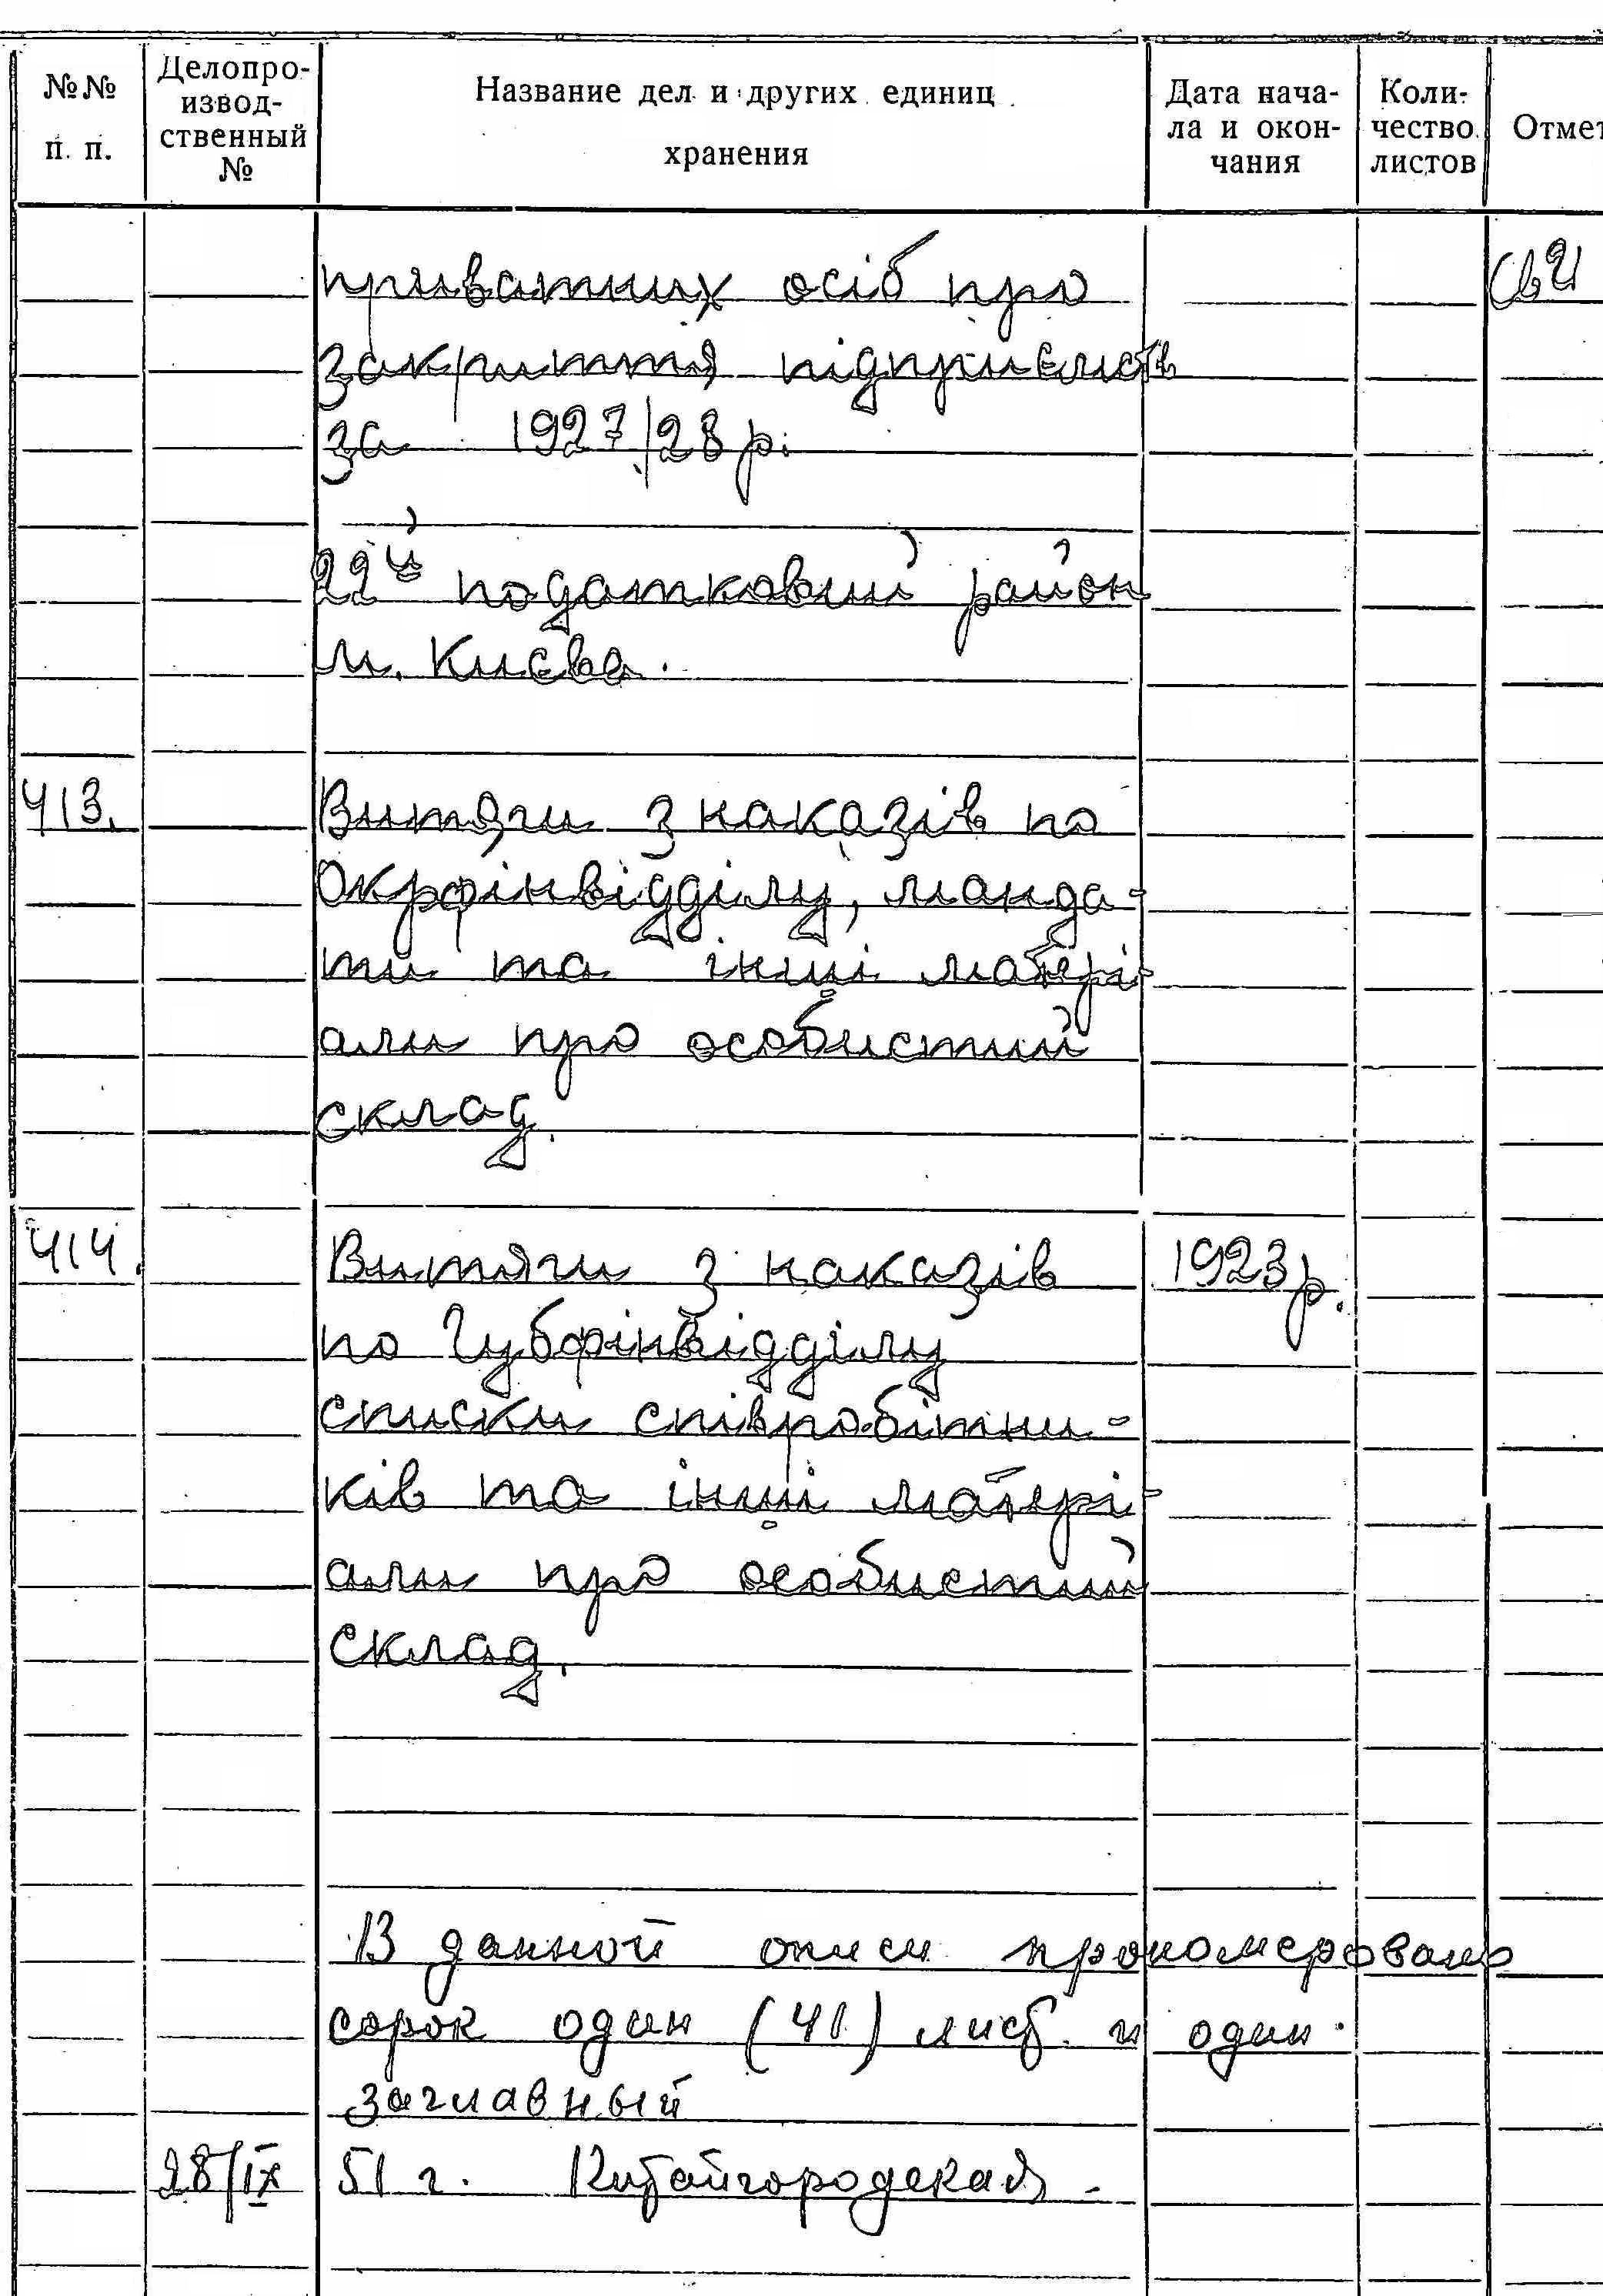 №№ п. п.
Делопро-
извод-
ственный
№
Название дел и других единиц
хранения
Дата нача-
ла и окон-
чания
Коли-
чество
листов
Отмет
приватних осіб про
закриття підприємств
за 1927/28 р.
22й податковий район
м. Києва.
413.
Витяги з наказів по
Окрфінвідділу, манда-
ти та інші матері-
али про особистий
склад.
414.
Витяги з наказів
1923 р.
по Губфінвідділу
списки співробітни-
ків та інші матері-
али про особистий
склад.
В данной описи прономеровано
сорок один (41) лист. и один
заглавный
28/IX 51 г. Китайгородская